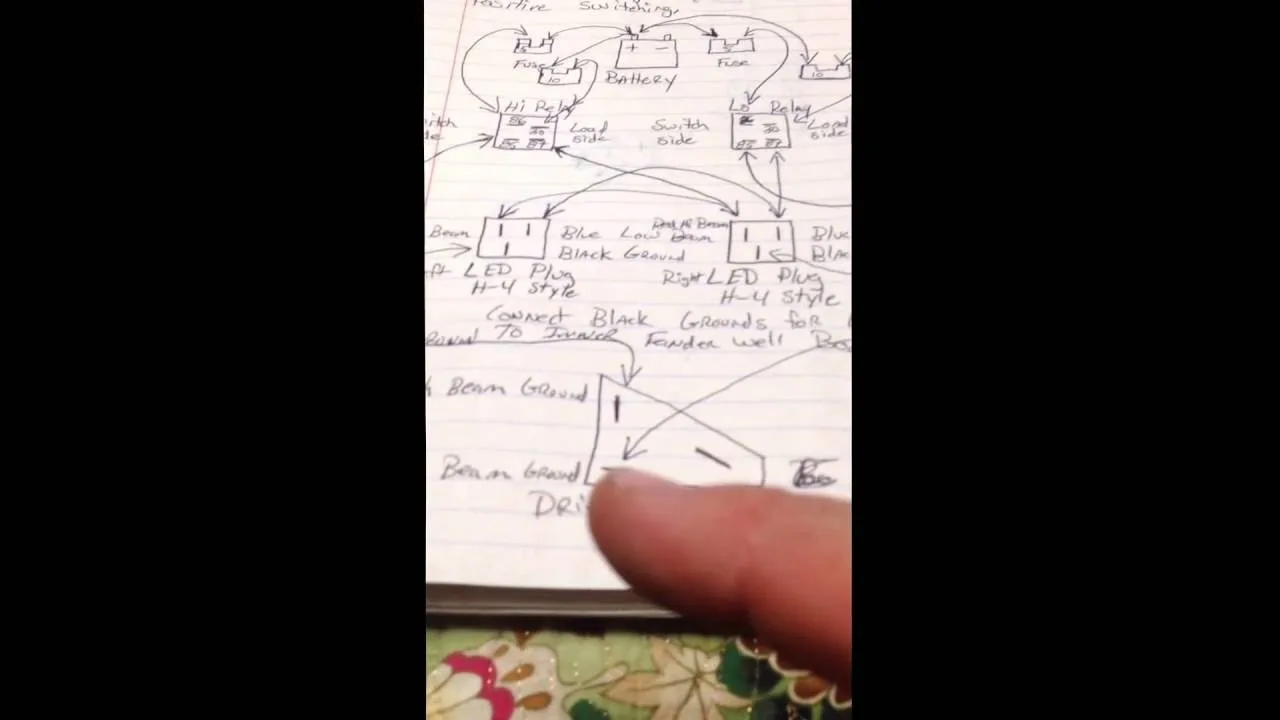 Positive Switching.
5 + - 5
Fuse Battery Fuse
10 10
Hi Relay Lo Relay
86 30 Load side Switch side 30 Load side
85 87 85 87
Beam Blue Low Beam Hi Beam Blue
Black Ground
LED Plug Right LED Plug
H-4 Style H-4 Style
Connect Black Grounds for
To Inner Fender well
Beam Ground
Beam Ground